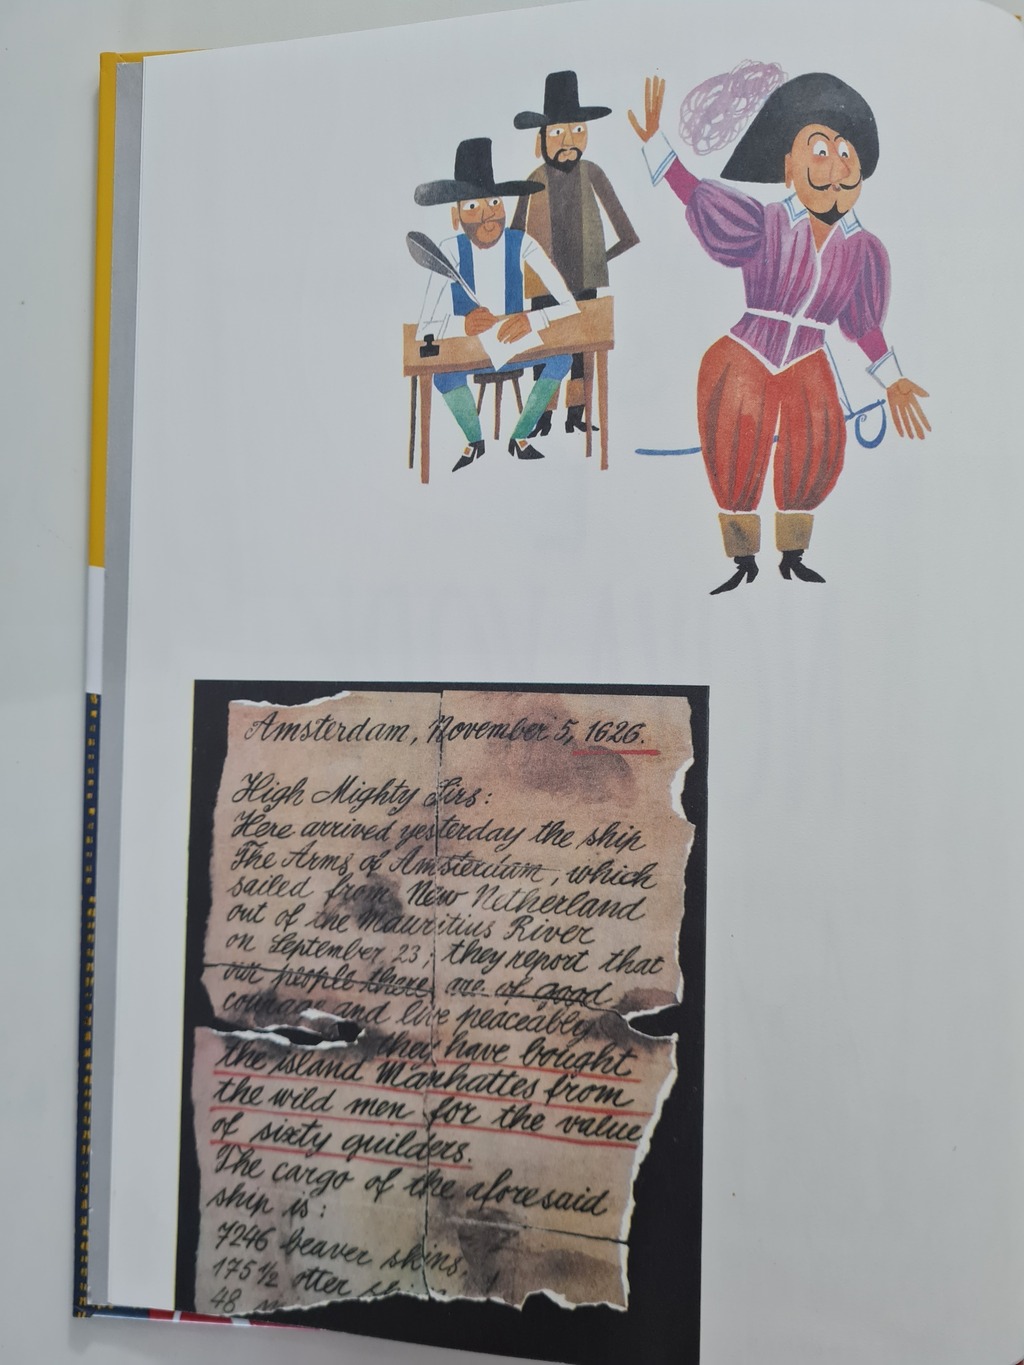 Amsterdam, November 5, 1626.
High Mighty Sirs:
Here arrived yesterday the ship
The Arms of Amsterdam, which
sailed from New Netherland
out of the Mauritius River
on September 23; they report that
our people there are of good
courage and live peaceably
they have bought
the island Manhattes from
the wild men for the value
of sixty guilders.
The cargo of the aforesaid
ship is:
7246 beaver skins,
175 1/2 otter
48